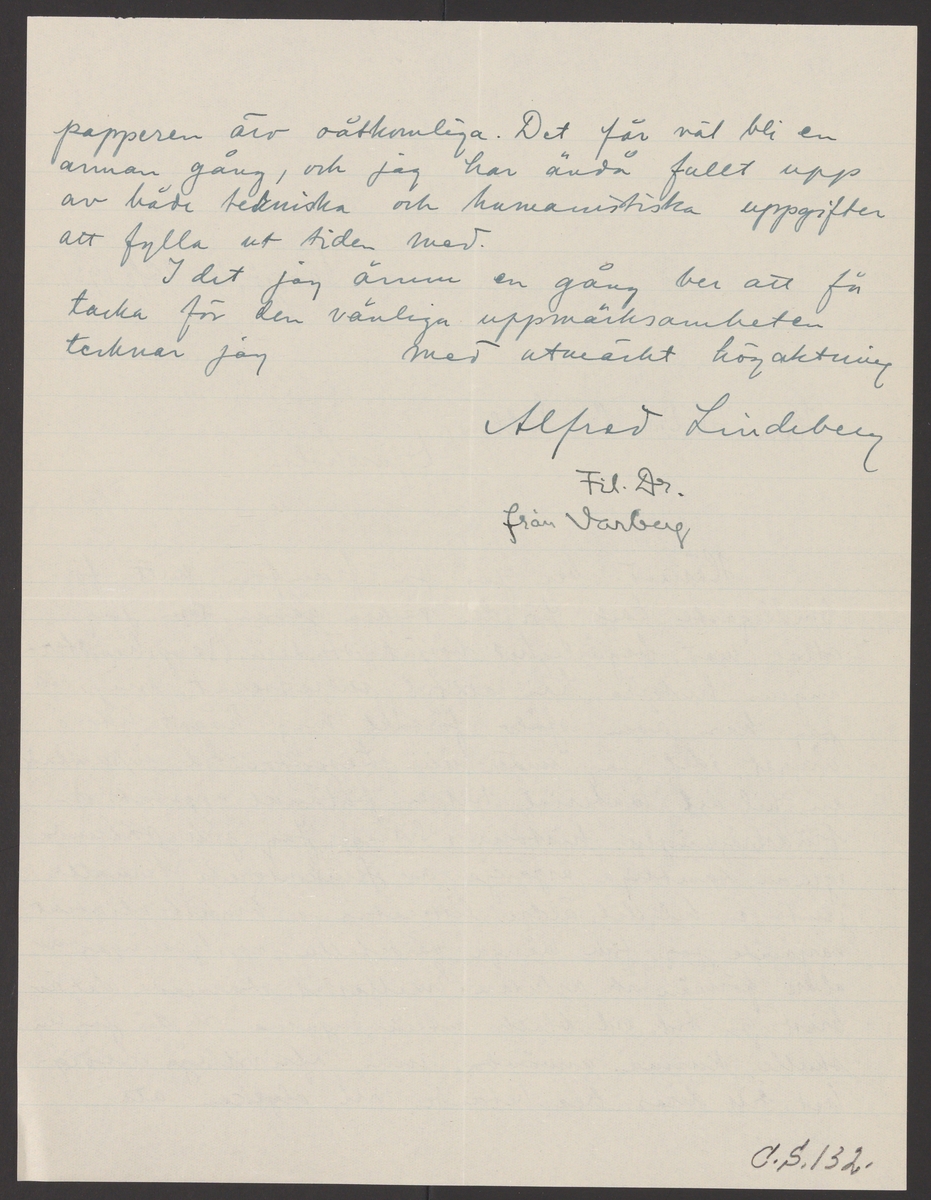 papperen äro oåtkomliga. Det får väl bli en
annan gång, och jag har ändå fullt upp
av både tekniska och humanistiska uppgifter
att fylla ut tiden med.
I det jag ännu en gång ber att få
tacka för den vänliga uppmärksamheten
tecknar jag med utmärkt högaktning
Alfred Lindeberg
Fil. Dr.
från Varberg
C.S.132.